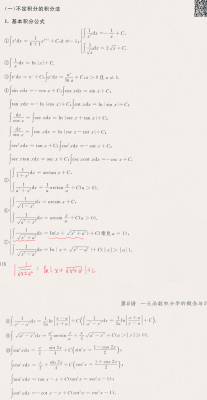 (一)不定积分的积分法
1. 基本积分公式
① ∫x^k dx = 1/(k+1) x^(k+1) + C, k ≠ -1; { ∫1/x² dx = -1/x + C, ∫1/√x dx = 2√x + C.
② ∫1/x dx = ln|x| + C.
③ ∫e^x dx = e^x + C; ∫a^x dx = a^x/ln a + C, a > 0 且 a ≠ 1.
④ ∫sin x dx = -cos x + C; ∫cos x dx = sin x + C;
∫tan x dx = -ln|cos x| + C; ∫cot x dx = ln|sin x| + C;
∫dx/cos x = ∫sec x dx = ln|sec x + tan x| + C;
∫dx/sin x = ∫csc x dx = ln|csc x - cot x| + C;
∫sec² x dx = tan x + C; ∫csc² x dx = -cot x + C;
∫sec x tan x dx = sec x + C; ∫csc x cot x dx = -csc x + C.
⑤ { ∫1/(1+x²) dx = arctan x + C,
∫1/(a²+x²) dx = 1/a arctan x/a + C (a > 0).
⑥ { ∫1/√(1-x²) dx = arcsin x + C,
∫1/√(a²-x²) dx = arcsin x/a + C (a > 0).
⑦ { ∫1/√(x²+a²) dx = ln(x + √(x²+a²)) + C (常见 a = 1),
∫1/√(x²-a²) dx = ln|x + √(x²-a²)| + C (|x| > |a|).
∫1/√(x²+a²) = ln|x + √(x²+a²)| + C
第8讲 一元函数积分学的概念与
⑧ ∫1/(x²-a²) dx = 1/2a ln|(x-a)/(x+a)| + C (∫1/(a²-x²) dx = 1/2a ln|(x+a)/(x-a)| + C).
⑨ ∫√(a²-x²) dx = a²/2 arcsin x/a + x/2 √(a²-x²) + C (a > |x| ≥ 0).
⑩ ∫sin² x dx = x/2 - sin 2x/4 + C (sin² x = (1-cos 2x)/2);
∫cos² x dx = x/2 + sin 2x/4 + C (cos² x = (1+cos 2x)/2);
∫tan² x dx = tan x - x + C (tan² x = sec² x - 1);
∫cot² x dx = -cot x - x + C (cot² x = csc² x - 1).